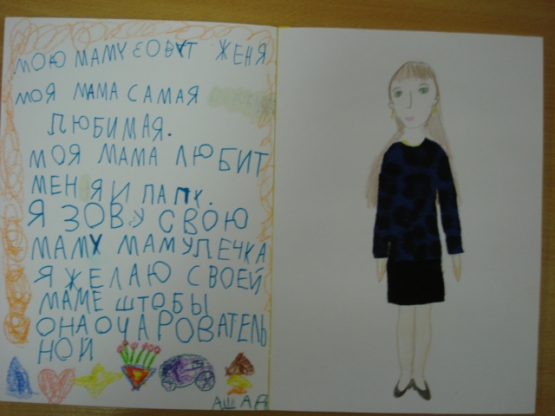 МОЮ МАМУ ЗОВУТ ЖЕНЯ
МОЯ МАМА САМАЯ
ЛЮБИМАЯ.
МОЯ МАМА ЛЮБИТ
МЕНЯ И ПАПУ.
Я ЗОВУ СВОЮ
МАМУ МАМУЛЕЧКА
Я ЖЕЛАЮ СВОЕЙ
МАМЕ ШТОБЫ
ОНА ОЧАРОВАТЕЛЬ
НОЙ